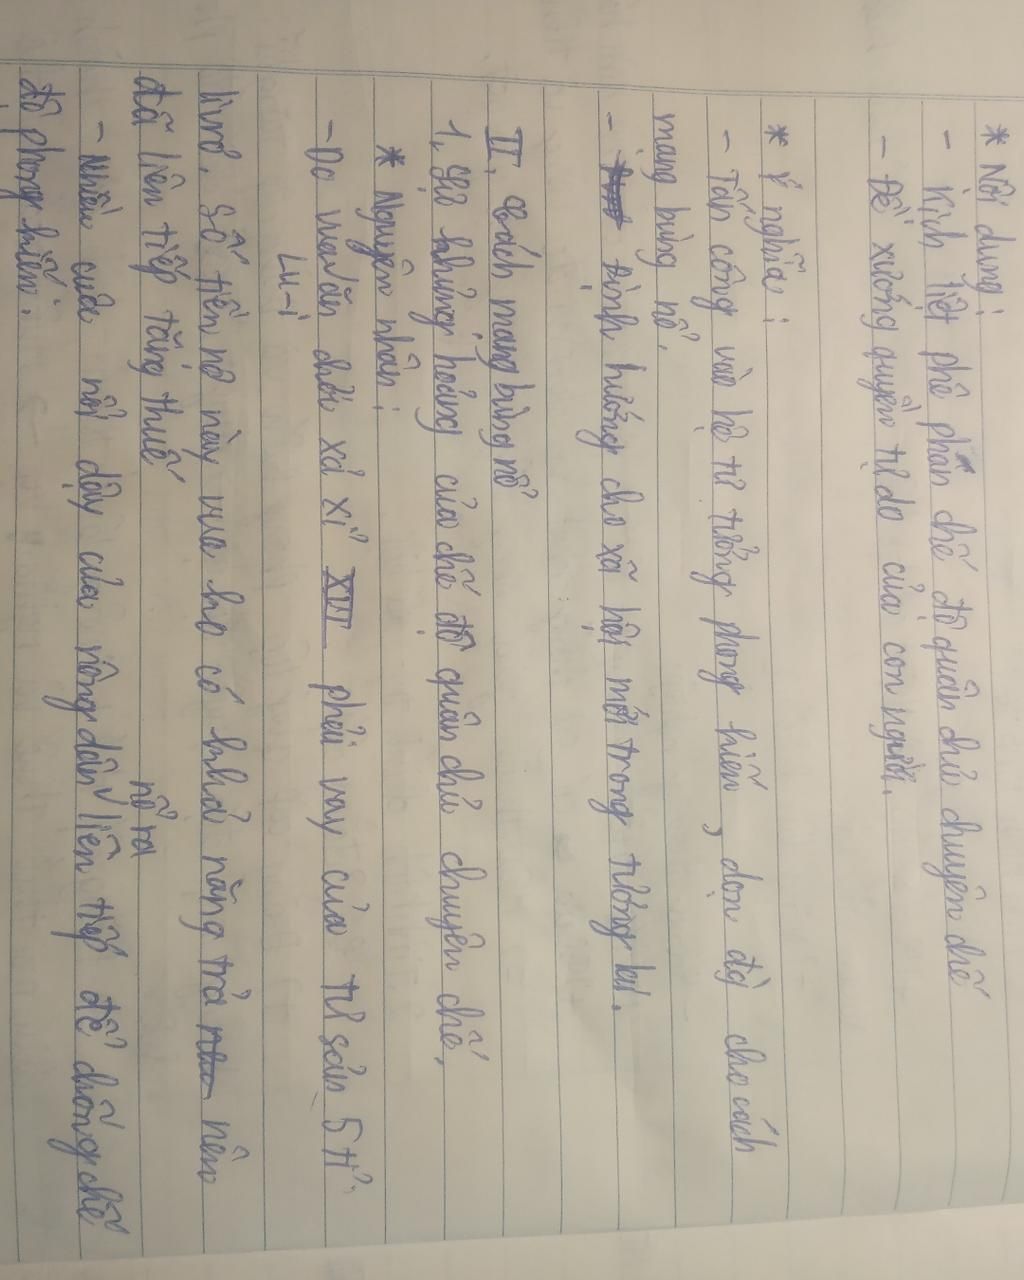 * Nội dung:
- Kịch liệt phê phán chế độ quân chủ chuyên chế
- Đề xướng quyền tự do của con người.
* Ý nghĩa:
- Tấn công vào hệ tư tưởng phong kiến, dọn đg cho cách
mạng bùng nổ.
- Định hướng cho xã hội mới trong tương lai.
II, Cách mạng bùng nổ
1, Sự khủng hoảng của chế độ quân chủ chuyên chế.
* Nguyên nhân:
- Do vua ăn chơi xả xỉ XVI phải vay của tư sản 5 tỉ
Lu-i
livrơ. Số tiền nợ này vua ko có khả năng trả nên
đã liên tiếp tăng thuế
nổ ra
- Nhiều cuộc nổi dậy của nông dân liên tiếp để chống chế
độ phong kiến.